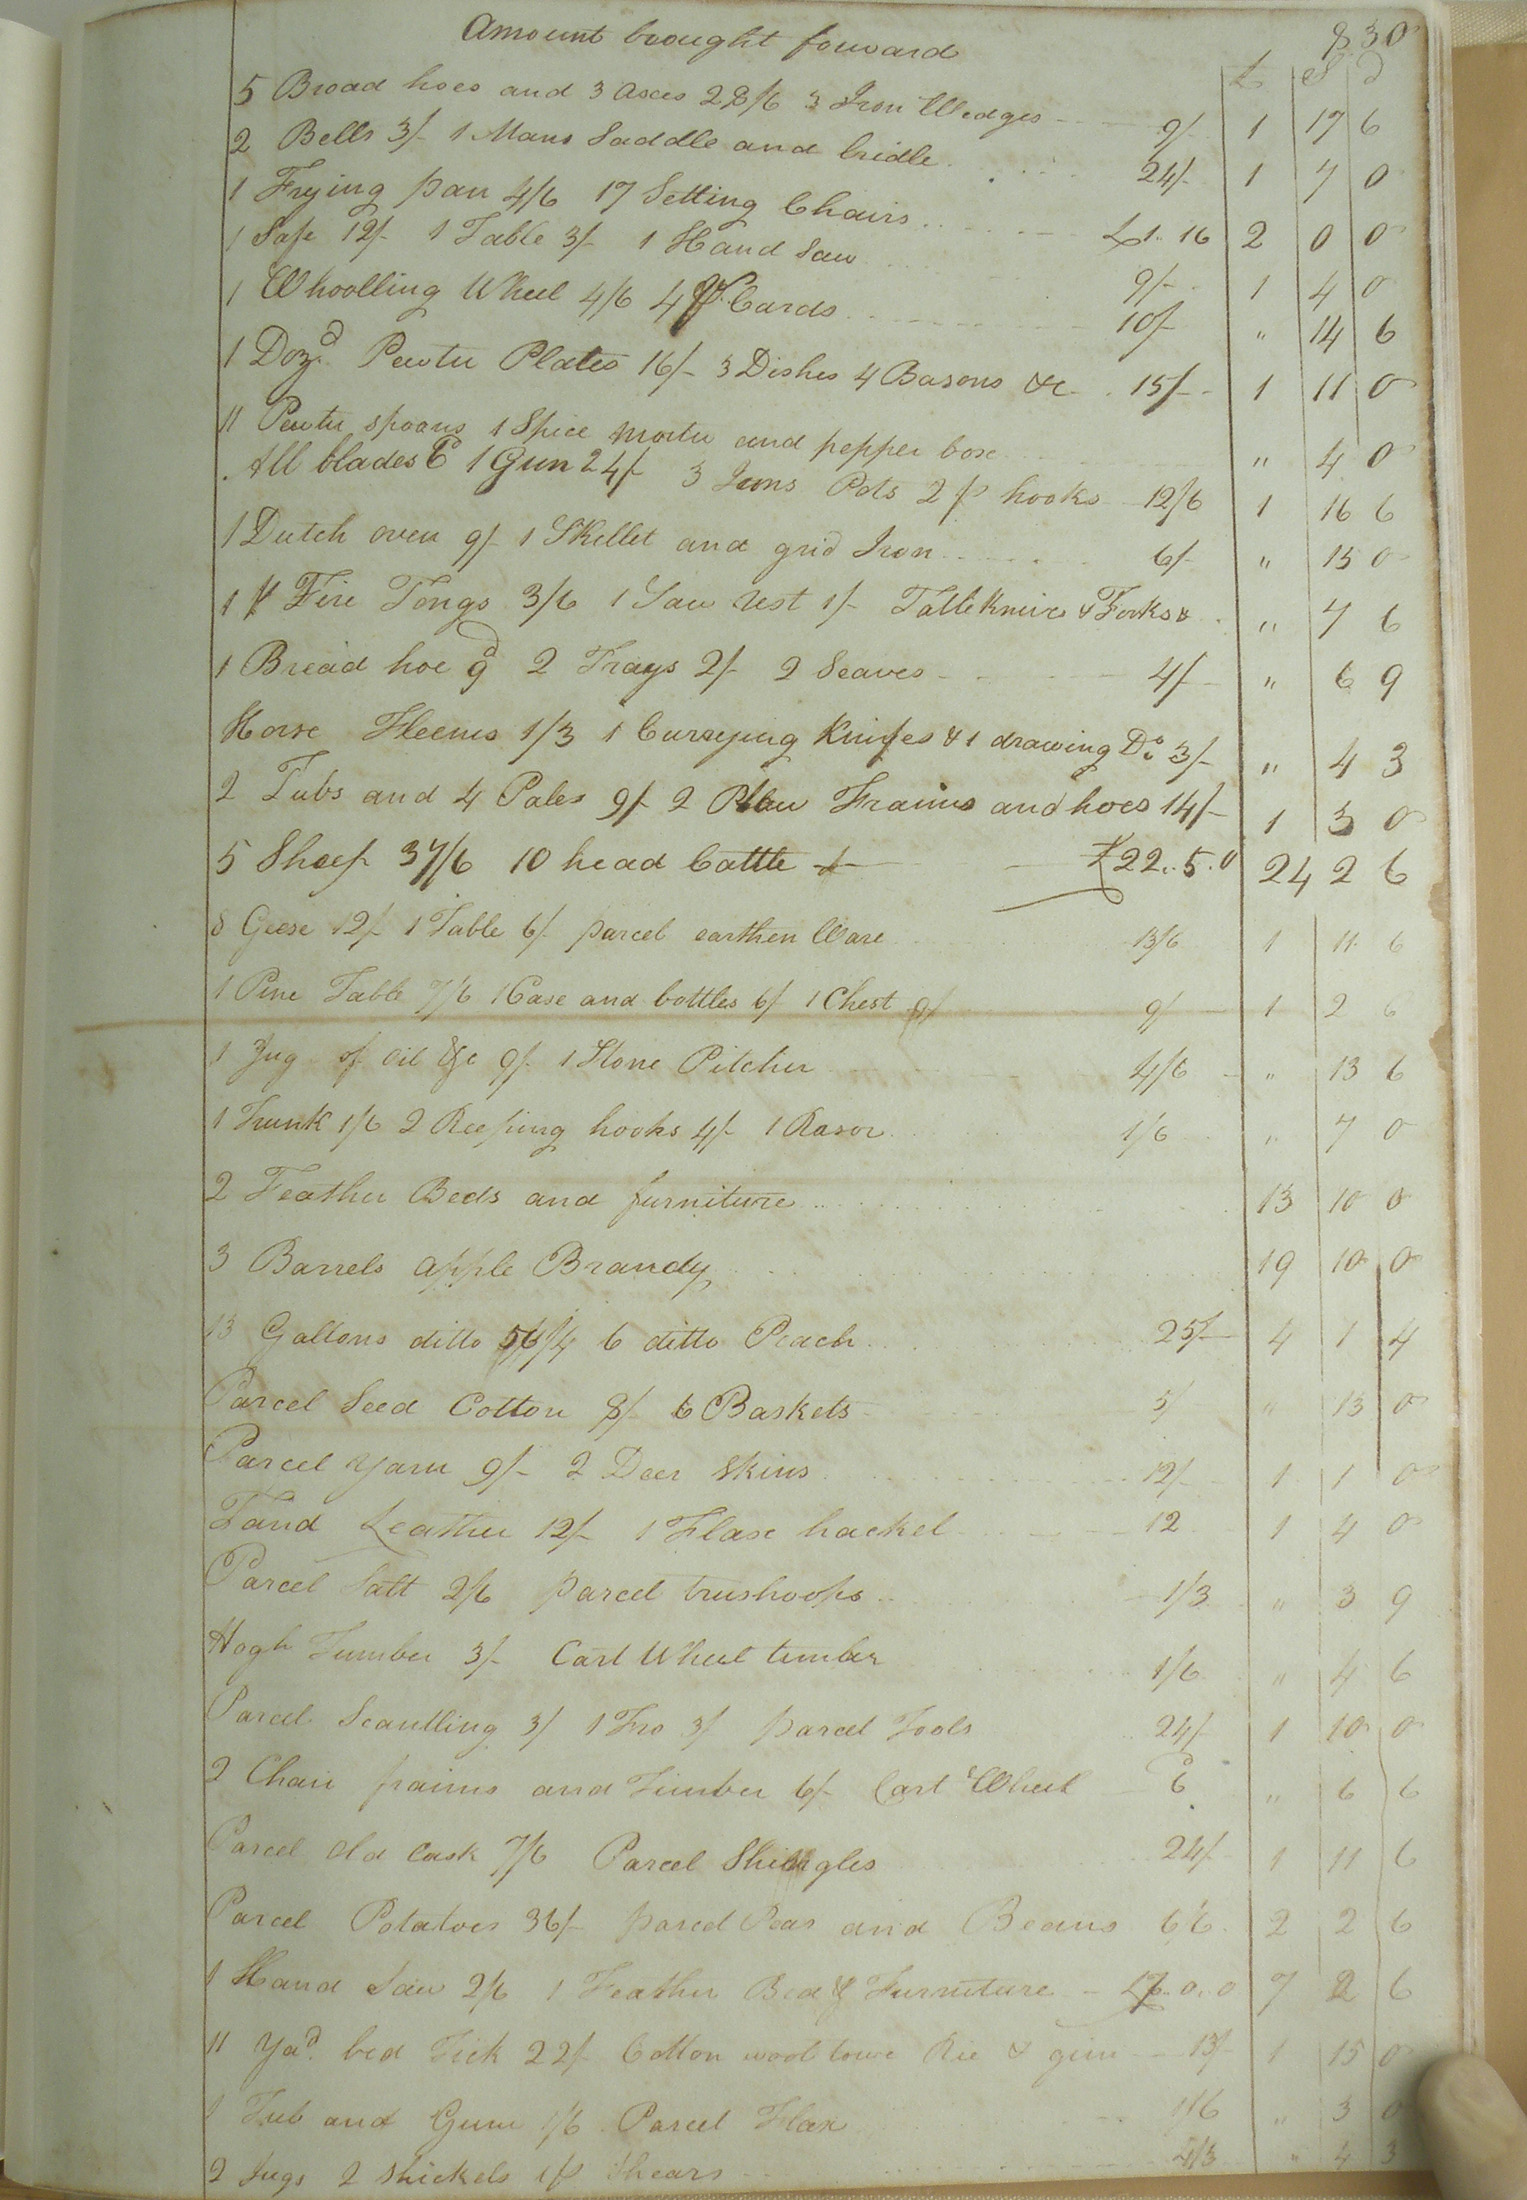 Amount brought forward 830
£ S d
5 Broad hoes and 3 axes 28/6 3 Iron Wedges 9/ 1 17 6
2 Bells 3/ 1 Mans Saddle and bridle 24/ 1 7 0
1 Frying pan 4/6 17 Setting Chairs £1.16 2 0 0
1 Safe 12/ 1 Table 3/ 1 Hand Saw 9/ 1 4 0
1 Whoolling Wheel 4/6 4 pr Cards 10/ " 14 6
1 Dozd. Pewter Plates 16/ 3 Dishes 4 Basons &c 15/ 1 11 0
11 Pewter spoons 1 Spice morter and pepper box " 4 0
All blades 6d 1 Gun 24/ 3 Irons Pots 2 p hooks 12/6 1 16 6
1 Dutch oven 9/ 1 Skillet and grid Iron 6/ " 15 0
1 p Fire Tongs 3/6 1 Saw rest 1/ Table Knives & Forks & " 7 6
1 Bread hoe 9d 2 Trays 2/ 2 Seaves 4/ " 6 9
Horse Fleems 1/3 1 Currying Knifes & 1 drawing Do. 3/ " 4 3
2 Tubs and 4 Pales 9/ 2 Plow Frames and hoes 14/ 1 3 0
5 Sheep 37/6 10 head Cattle £22.5.0 24 2 6
8 Geese 12/ 1 Table 6/ parcel earthen Ware 13/6 1 11 6
1 Pine Table 7/6 1 Case and bottles 6/ 1 Chest 9/ 9/ 1 2 6
1 Jug of oil &c 9/ 1 Stone Pitcher 4/6 " 13 6
1 Trunk 1/6 2 Reeping hooks 4/ 1 Rasor 1/6 " 7 0
2 Feather Beds and furniture 13 10 0
3 Barrels apple Brandy 19 10 0
13 Gallons ditto 56/4 6 ditto Peach 25/ 4 1 4
Parcel Seed Cotton 8/ 6 Baskets 5/ " 13 0
Parcel Yarn 9/ 2 Deer Skins 12/ 1 1 0
Tand Leather 12/ 1 Flax hackel 12 1 4 0
Parcel Salt 2/6 parcel trushoops 1/3 " 3 9
Hogh Timber 3/ Cart Wheel timber 1/6 " 4 6
Parcel Scantling 3/ 1 Fro 3/ parcel Tools 24/ 1 10 0
2 Chair fraims and Timber 6/ Cart Wheel 6d " 6 6
Parcel old Cask 7/6 Parcel Shingles 24/ 1 11 6
Parcel Potatoes 36/ parcel Peas and Beans 6/6 2 2 6
1 Hand Saw 2/6 1 Feather Bed & Furniture £7.0.0 7 2 6
11 Yad. bed Tick 22/ Cotton wool towe Rie & gum 13/ 1 15 0
1 Tub and Gum 1/6 Parcel Flax 1/6 " 3 0
2 Jugs 2 Shickels 1 p Shears 4/3 " 4 3